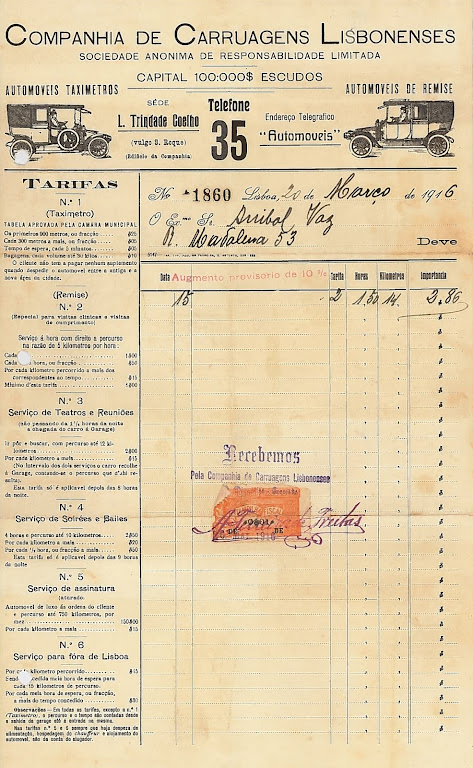 COMPANHIA DE CARRUAGENS LISBONENSES
SOCIEDADE ANONIMA DE RESPONSABILIDADE LIMITADA
CAPITAL 100:000$ ESCUDOS
AUTOMOVEIS TAXIMETROS
AUTOMOVEIS DE REMISE
SÉDE
L. Trindade Coelho
(vulgo S. Roque)
(Edificio da Companhia)
Telefone
35
Endereço Telegrafico
"Automoveis"
TARIFAS
N.º 1
(Taximetro)
TABELA APROVADA PELA CAMARA MUNICIPAL
Os primeiros 900 metros, ou fracção $25
Cada 300 metros a mais, ou fracção $05
Tempo de espera, cada 5 minutos $05
Bagagens, cada volume até 30 kilos $10
O cliente não tem a pagar nenhum suplemento
quando despedir o automovel entre a antiga e a
nova área da cidade.
(Remise)
N.º 2
(Especial para visitas clinicas e visitas
de cumprimento)
Serviço á hora com direito a percurso
na razão de 5 kilometros por hora:
Cada hora 1$00
Cada hora, ou fracção $50
Por cada kilometro percorrido a mais dos
correspondentes ao tempo $15
Minimo d'esta tarifa 1$00
N.º 3
Serviço de Teatros e Reuniões
(não passando da 1 1/2 horas da noite
a chegada do carro á Garage)
Ir pôr e buscar, com percurso até 12 ki-
lometros 2$00
Por cada kilometro a mais $15
(No intervalo dos dois serviços o carro recolhe
á Garage, contando-se o percurso que d'ahi re-
sulta).
Esta tarifa só é aplicavel depois das 8 horas
da noite.
N.º 4
Serviço de Soirées e Bailes
4 horas e percurso até 10 kilometros 2$50
Por cada kilometro a mais $20
Por cada 1/2 hora, ou fracção a mais $50
Esta tarifa só é aplicavel depois das 9 horas
da noite
N.º 5
Serviço de assinatura
Automovel de luxo ás ordens do cliente
e percurso até 750 kilometros, por
mez 150$00
Por cada kilometro a mais $15
N.º 6
Serviço para fóra de Lisboa
Por cada kilometro percorrido $15
Sendo concedida meia hora de espera para
cada 15 kilometros de percurso.
Por cada meia hora de espera, ou fracção,
a mais do tempo concedido $30
Observações — Em todas as tarifas, excepto a n.º 1
(Taximetro), o percurso e o tempo são contados desde
a sahida da garage até á entrada na mesma.
Nas tarifas n.os 5 e 6 sempre que haja despeza de
alimentação, hospedagem do chauffeur e alojamento do
automovel, são da conta do alugador.
No *1860 Lisboa, 20 de Março de 1916
O Ex.mo Sr. Anibal Vaz
R. Madalena 53
Deve
Augmento provisorio de 10 %
Data Tarifa Horas Kilometros Importancia
15 2 1,50 14 2.86
Recebemos
Pela Companhia de Carruagens Lisbonenses
de Freitas